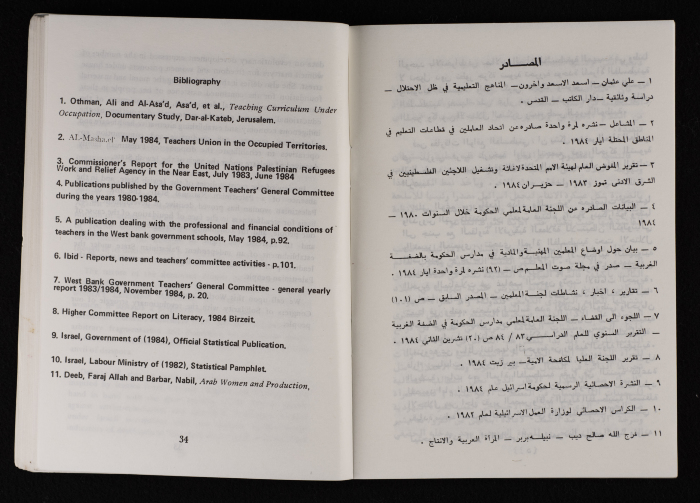 Bibliography
1. Othman, Ali and Al-Asa'd, Asa'd, et al., Teaching Curriculum Under
Occupation, Documentary Study, Dar-al-Kateb, Jerusalem.
2. AL-Masha,el' May 1984, Teachers Union in the Occupied Territories.
3. Commissioner's Report for the United Nations Palestinian Refugees
Work and Relief Agency in the Near East, July 1983, June 1984
4. Publications published by the Government Teachers' General Committee
during the years 1980-1984.
5. A publication dealing with the professional and financial conditions of
teachers in the West bank government schools, May 1984, p.92.
6. Ibid - Reports, news and teachers' committee activities - p.101.
7. West Bank Government Teachers' General Committee - general yearly
report 1983/1984, November 1984, p. 20.
8. Higher Committee Report on Literacy, 1984 Birzeit.
9. Israel, Government of (1984), Official Statistical Publication.
10. Israel, Labour Ministry of (1982), Statistical Pamphlet.
11. Deeb, Faraj Allah and Barbar, Nabil, Arab Women and Production,
34
المصــادر
١ ــ علي عثمان ــ اسعد الاسعد واخرون ــ المناهج التعليمية في ظل الاحتلال ــ
دراسة وثائقية ــ دار الكاتب ــ القدس .
٢ ــ المشاعل ــ نشرة لمرة واحدة صادره عن اتحاد العاملين في قطاعات التعليم في
المناطق المحتلة ايار ١٩٨٤ .
٣ ــ تقرير المفوض العام لهيئة الامم المتحدة لاغاثة وتشغيل اللاجئين الفلسطينيين في
الشرق الادنى تموز ١٩٨٣ ــ حزيران ١٩٨٤ .
٤ ــ البيانات الصادره عن اللجنة العامة لمعلمي الحكومة خلال السنوات ١٩٨٠ ــ
١٩٨٤
٥ ــ بيان حول اوضاع المعلمين المهنية والمادية في مدارس الحكومة بالضفة
الغربية ــ صدر في مجلة صوت المعلم ص ــ (٩٢) نشره لمرة واحدة ايار ١٩٨٤ .
٦ ــ تقارير ، اخبار ، نشاطات لجنة المعلمين ــ المصدر السابق ــ ص (١٠١)
٧ ــ اللجوء الى القضاء ــ اللجنة العامة لمعلمي مدارس الحكومة في الضفة الغربية
ــ التقرير السنوي للعام الدراسي ٨٣ / ٨٤ ص (٢٠) تشرين الثاني ١٩٨٤ .
٨ ــ تقرير اللجنة العليا لمكافحة الامية ــ بير زيت ١٩٨٤ .
٩ ــ النشرة الاحصائية الرسمية لحكومة اسرائيل عام ١٩٨٤ .
١٠ ــ الكراس الاحصائي لوزارة العمل الاسرائيلية لعام ١٩٨٢ .
١١ ــ فرج الله صالح ديب ــ نبيله بربر ــ المرأة العربية والانتاج .